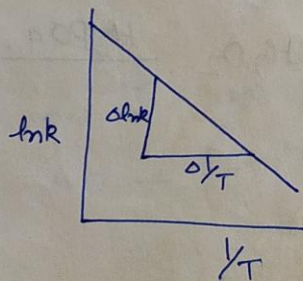 Δlnk
lnk
Δ1/T
1/T